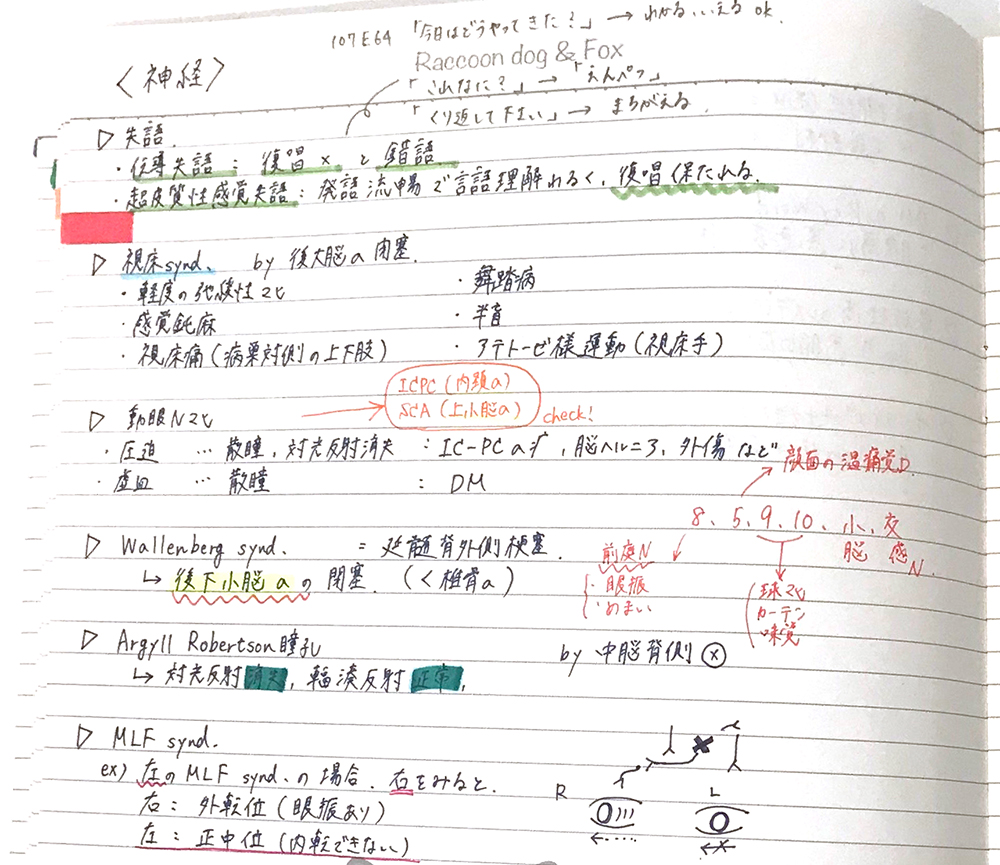 107E64 「今日はどうやってきた?」→ わかる、いえる ok.
Raccoon dog & Fox
〈神経〉
「これなに?」→「えんぺつ」
「くり返して下さい」→ まちがえる.
▷ 失語.
・伝導失語 : 復唱 × と 錯語
・超皮質性感覚失語 : 発語流暢で言語理解わるく、復唱保たれる.
▷ 視床synd. by 後大脳a 閉塞.
・軽度の弛緩性マヒ ・舞踏病
・感覚鈍麻 ・半盲
・視床痛(病巣対側の上下肢) ・アテトーゼ様運動(視床手)
ICPC(内頚a)
SCA(上小脳a) check!
▷ 動眼Nマヒ
・圧迫 … 散瞳, 対光反射消失 : IC-PC a, 脳ヘルニア, 外傷 など
・虚血 … 散瞳 : DM
顔面の温痛覚D.
8、5、9、10、小、交
脳 感N.
▷ Wallenberg synd. = 延髄背外側梗塞.
↳ 後下小脳a の 閉塞. (< 椎骨a)
前庭N
・眼振
・めまい
球マヒ
カーテン
味覚
▷ Argyll Robertson瞳孔 by 中脳背側 ⊗
↳ 対光反射 消失, 輻湊反射 正常.
▷ MLF synd.
ex) 左のMLF synd. の場合. 右をみると.
右 : 外転位(眼振あり)
左 : 正中位(内転できない)
R L